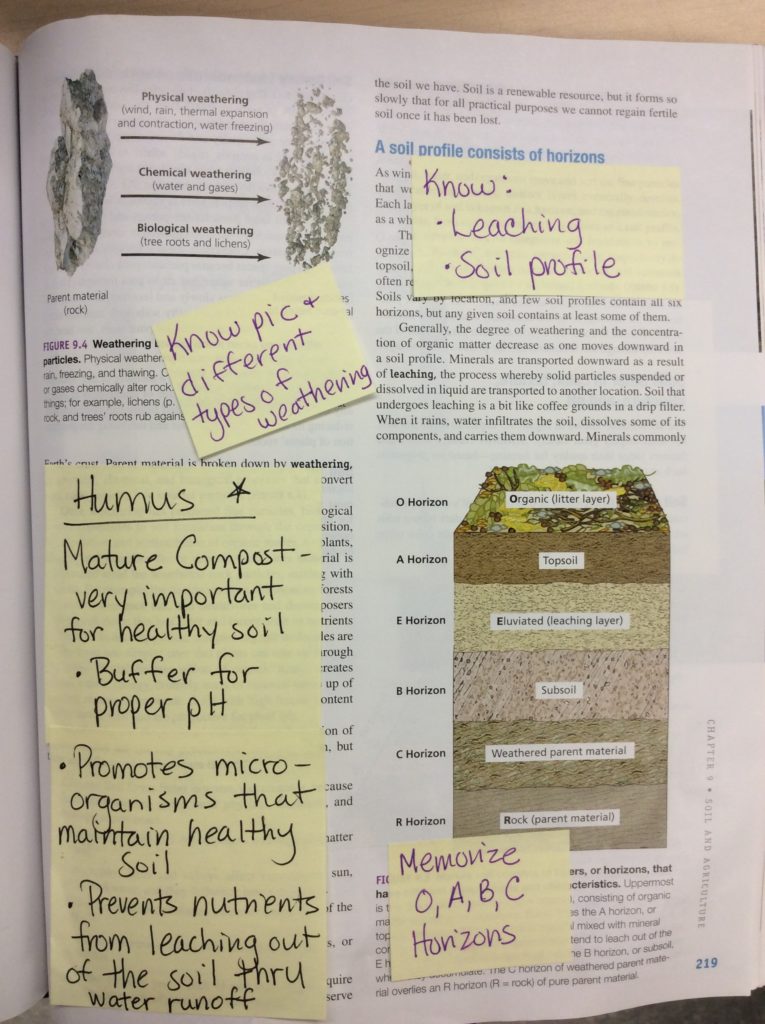 Physical weathering
(wind, rain, thermal expansion
and contraction, water freezing)
Chemical weathering
(water and gases)
Biological weathering
(tree roots and lichens)
Parent material
(rock)
FIGURE 9.4 Weathering
particles. Physical
rain, freezing, and thawing.
or gases chemically alter rock.
things; for example, lichens (p.
rock, and trees' roots rub
Know pic +
different
types of
weathering
Earth's crust. Parent material is broken down by weathering,
Humus *
Mature Compost-
very important
for healthy soil
• Buffer for
proper pH
• Promotes micro-
organisms that
maintain healthy
Soil
• Prevents nutrients
from leaching out
of the soil thru
water runoff
the soil we have. Soil is a renewable resource, but it forms so
slowly that for all practical purposes we cannot regain fertile
soil once it has been lost.
A soil profile consists of horizons
Know:
• Leaching
• Soil profile
As
that
Each
as a
topsoil,
often
Soils vary by location, and few soil profiles contain all six
horizons, but any given soil contains at least some of them.
Generally, the degree of weathering and the concentra-
tion of organic matter decrease as one moves downward in
a soil profile. Minerals are transported downward as a result
of leaching, the process whereby solid particles suspended or
dissolved in liquid are transported to another location. Soil that
undergoes leaching is a bit like coffee grounds in a drip filter.
When it rains, water infiltrates the soil, dissolves some of its
components, and carries them downward. Minerals commonly
O Horizon Organic (litter layer)
A Horizon Topsoil
E Horizon Eluviated (leaching layer)
B Horizon Subsoil
C Horizon Weathered parent material
R Horizon Rock (parent material)
Memorize
O, A, B, C
Horizons
or horizons, that
Uppermost
consisting of organic
the A horizon, or
mixed with mineral
tend to leach out of the
B horizon, or subsoil,
The C horizon of weathered parent mate-
rial overlies an R horizon (R = rock) of pure parent material.
CHAPTER 9 • SOIL AND AGRICULTURE
219